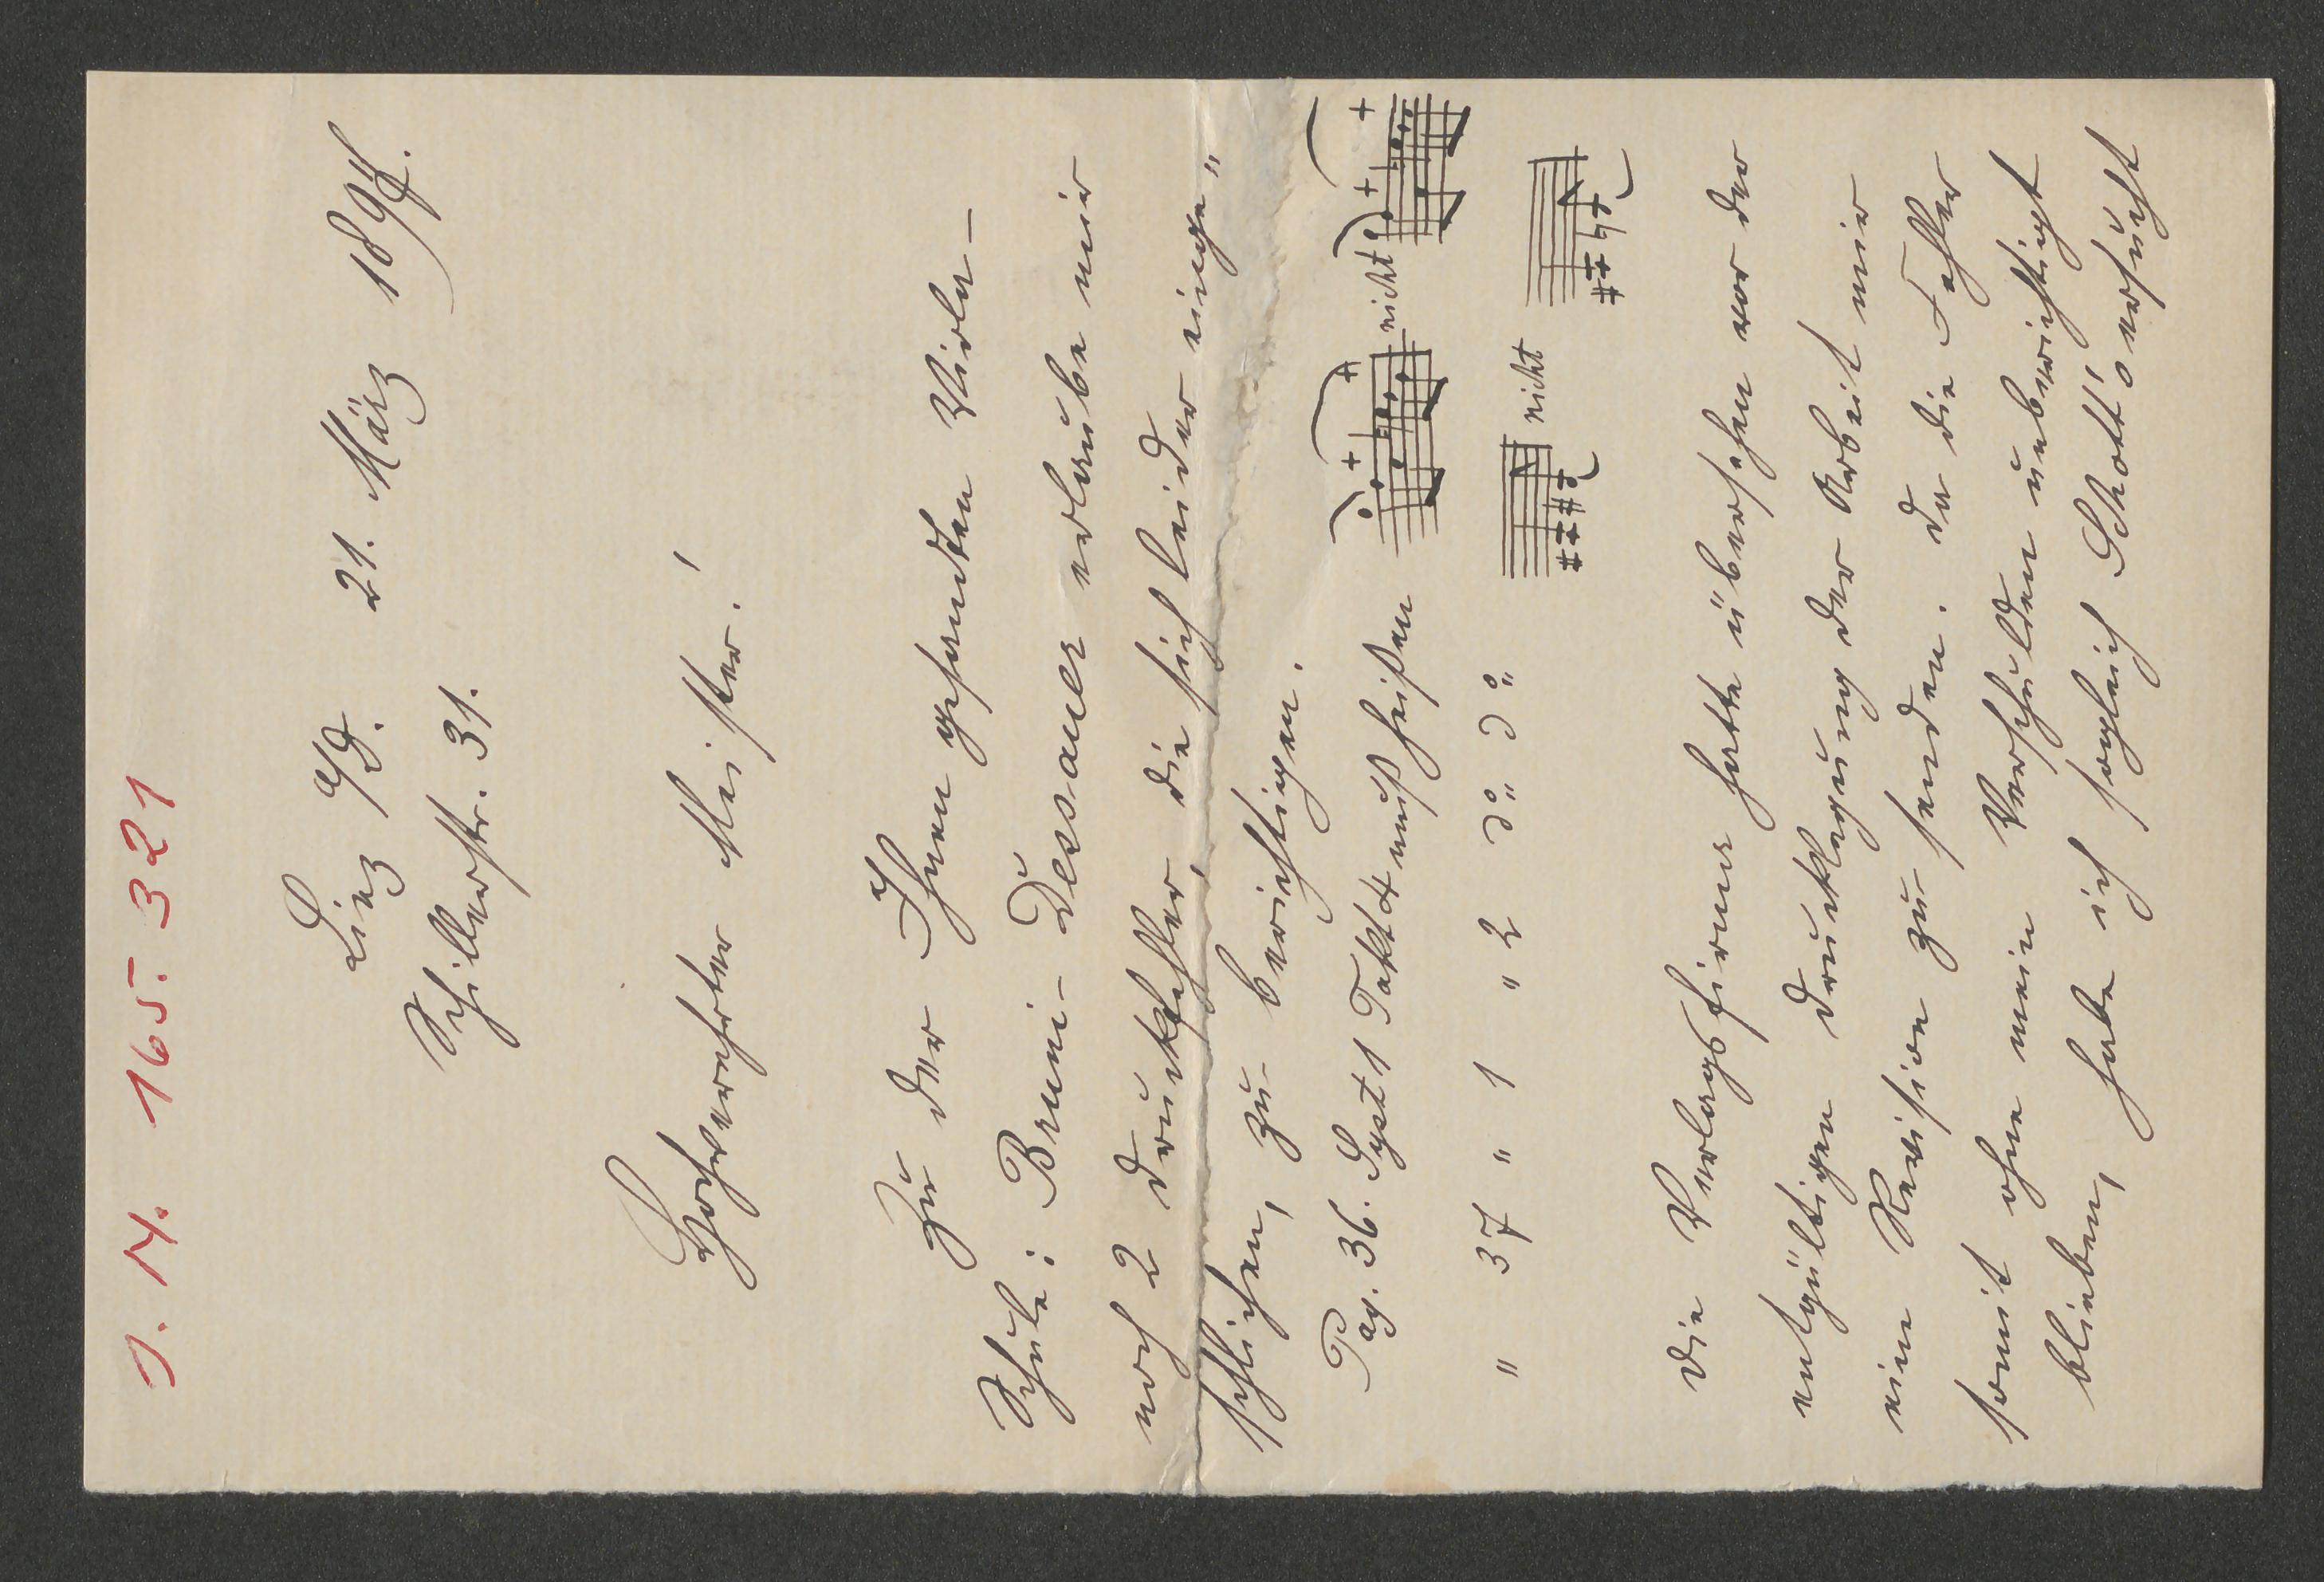 J. N. 165.321
Linz a/D. 21. März 1898.
Schillerstr. 31.
Hochverehrter Meister!
Zu der Ihnen gesandten Viola-
Schule: Bruni-Dessauer erlaube mir
noch 2 Druckfehler, die sich leider einge„
schlichen, zu berichtigen.
Pag. 36. Syst 1 Takt 4 muß heißen nicht
„ 37 „ 1 „ 2 do. do. nicht
Die Verlagsfirma hatte übersehen vor der
entgültigen Drucklegung der Arbeit mir
eine Revision zu senden. Da die Fehler
somit ohne mein Verschulden unberichtigt
blieben, habe ich sogleich Schott's ersucht